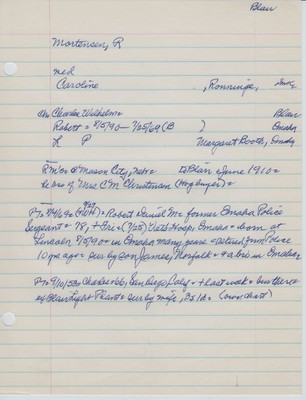 Blair
Mortensen, R
md
Caroline , Ronninge,
chn Charles Wilhelm = Blair
Robert = 8/5/90 - 7/25/69 (B ) Omaha
L P Margaret Booth, Omaha
R M's @ Mason City, Nebr = to Blair = June 1910 =
he bro of Mrs C M Christensen
P To 7/29/69 = Robert Daniel M = former Omaha Police
Sergeant = 78, + Fri = (7/25) Vets Hosp, Omaha = born at
Lincoln 8/5/90 = in Omaha many years = retired from Police
10 yrs ago = sur by son James, Norfolk = 4 bro in Omaha =
P To 9/10/53 = Charles 66, San Diego, Calif = + last week = brother
of Blair = sur by wife, 2s 1d = (own chart)